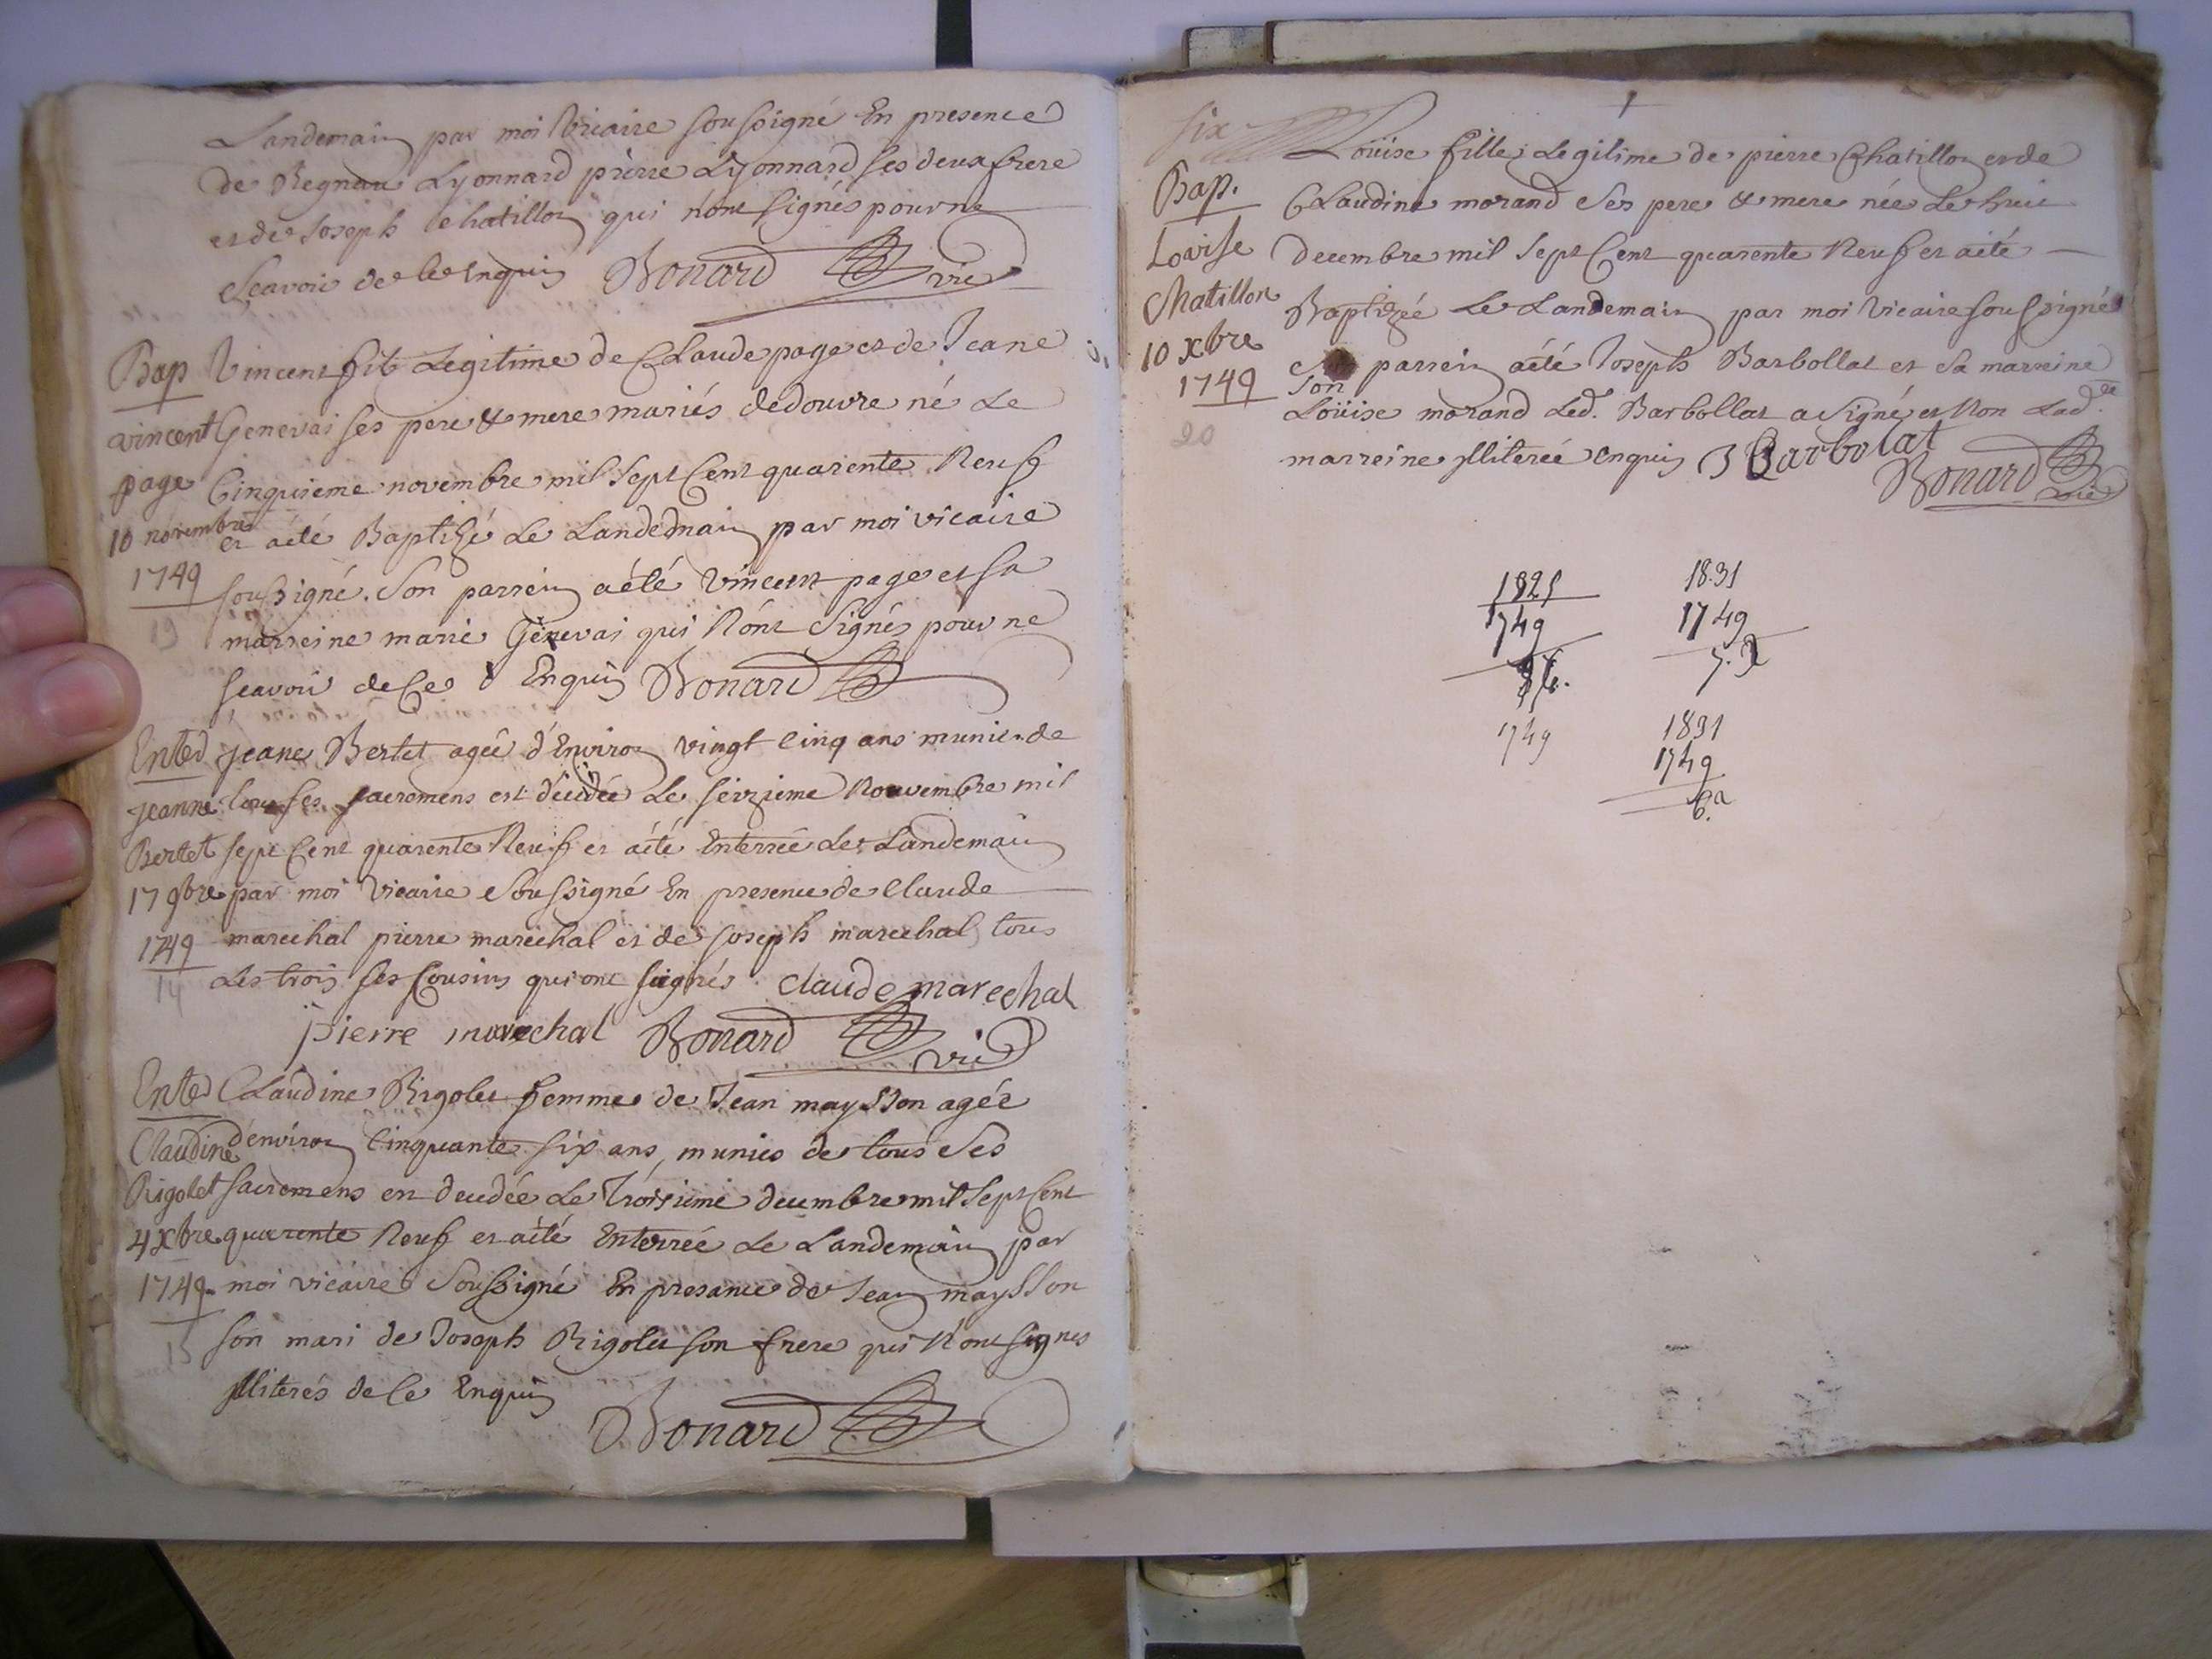 Landemain par moi vicaire soussigné En presence
de Regnau Lyonnard pierre Lyonnard ses deux frere
et de Joseph chatillon qui n'ont signés pour ne
sçavoir de ce Enquis Bonard vic
Bap Vincent fils Legitime de Claude page et de Jeane
vincent Genevai ses pere & mere mariés dedouvre né Le
page Cinquieme novembre mil sept Cent quarente Neuf
10 novembre et aété Baptizé Le Landemain par moi vicaire
1749 soussigné. Son parrein aété Vincent page et sa
19 marreine marie Genevai qui N'ont signés pour ne
scavoir de Ce Enquis Bonard
Ented Jeane Bertet agée d'Environ vingt cinq ans munie de
jeanne tous ses sacremens est décédée Le seizieme Nouvembre mil
Bertet sept Cent quarente Neuf et aété Enterrée Le Landemain
17 9bre par moi vicaire soussigné En presence de claude
1749 marechal pierre marechal et de joseph marechal tous
14 Les trois ses Cousins qui ont signés claude marechal
pierre marechal Bonard vic
Ented Claudine Rigolet femme de Jean maysson agée
Claudine d'environ Cinquante six ans, munie de tous ses
Rigolet sacremens est decedée Le Troisieme decembre mil sept Cent
4 xbre quarente Neuf et aété Enterrée Le Landemain par
1749 moi vicaire soussigné En presance de Jean maysson
15 son mari de Joseph Rigolet son frere qui N'ont signes
illiterés de Ce Enquis
Bonard
six
Loüise fille Legitime de pierre Chatillon et de
Bap. Claudine morand ses pere & mere née Le huit
Lovise decembre mil sept Cent quarente Neuf et aété
Chatillon Baptizée Le Landemain par moi vicaire soussigné
10 xbre parrein aété Joseph Barbollat et sa marreine
1749 son
Loüise morand Led. Barbollat a signé et Non Lad.de
20 marreine illiterée Enquis J Barbolat
Bonard vic
1821 18.31
1749 1749
1749 1831
1749